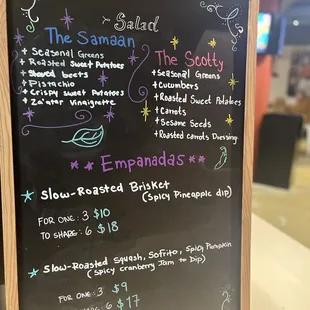 Salad
The Samaan
+ Seasonal Greens
+ Roasted Sweet Potatoes
+ Shaved beets
+ Pistachio
+ Crispy sweet Potatoes
+ Za'atar Vinaigrette
The Scotty
+ Seasonal Greens
+ Cucumbers
+ Roasted Sweet Potatoes
+ Carrots
+ Sesame Seeds
+ Roasted carrots Dressing
Empanadas
Slow-Roasted Brisket
(Spicy Pineapple dip)
FOR ONE: 3 $10
TO SHARE: 6 $18
Slow-Roasted Squash, Sofrito, Spicy Pumpkin
(Spicy cranberry Jam to Dip)
FOR ONE: 3 $9
6 $17